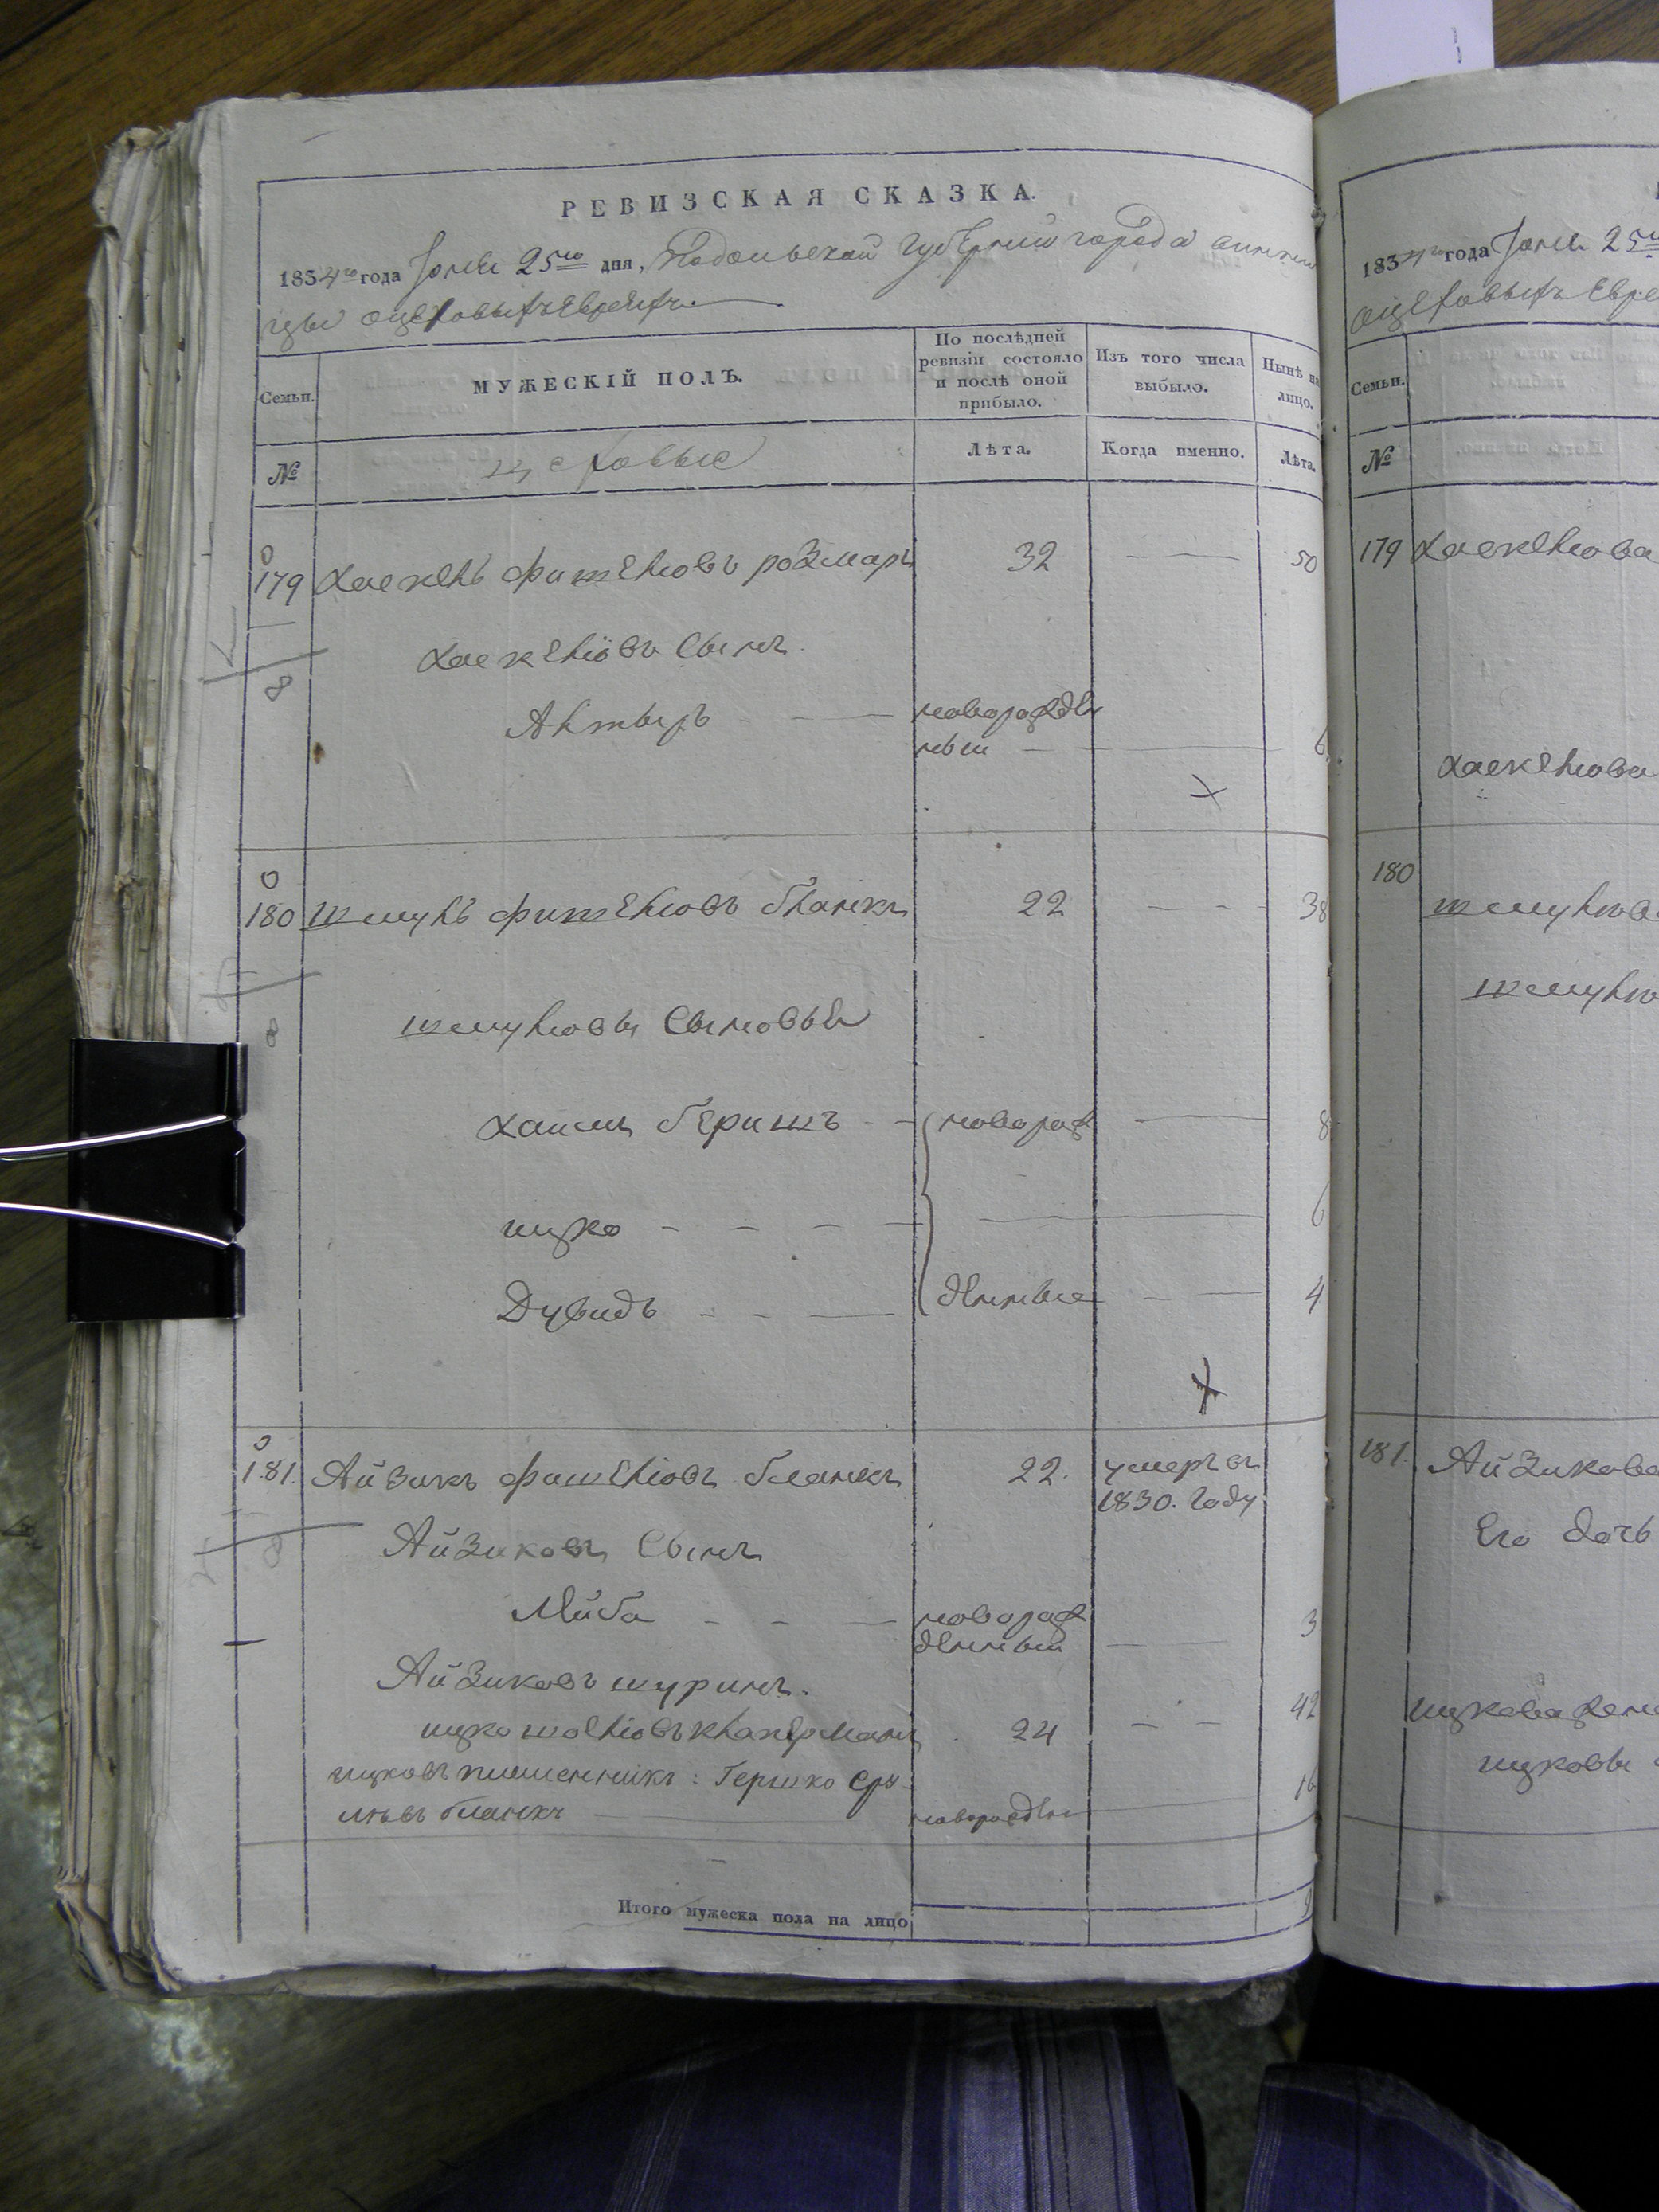 РЕВИЗСКАЯ СКАЗКА.
1834го года Іюня 25го дня, Подольской губерніи города Винни
цы цеховыхъ Евреехъ.
Семьи.
МУЖЕСКІЙ ПОЛЪ.
По послѣдней
ревизіи состояло
и послѣ оной
прибыло.
Изъ того числа
выбыло.
Нынѣ на
лицо.
№
цеховые
Лѣта.
Когда именно.
Лѣта.
179 Хаскель Фишелювъ 32 50
Хаскелювъ Сынъ.
новорожде
ный 6
180 Шмуль Фишелювъ бланкъ 22 38
Шмулювы Сыновья
Хаимъ берншъ новорож 8
ицко 6
Дувидъ денные 4
181. Айзикъ Фишелювъ бланкъ 22. умеръ въ
1830. Году
Айзиковъ Сынъ
Лейба новорож 3
денный
Айзиковъ шуринъ. 42
ицко 24
ицковъ племенникъ: Гершко Сру 16
левъ бланкъ новорожден
Итого мужеска пола на лицо 9
1834го года Іюня 25го
цеховыхъ Евре
Семьи.
№
179 Хаскелюва
Хаскелюва
180
Шмулюва
Шмулю
181. Айзикова
Его дочь
ицкова жена
ицковы